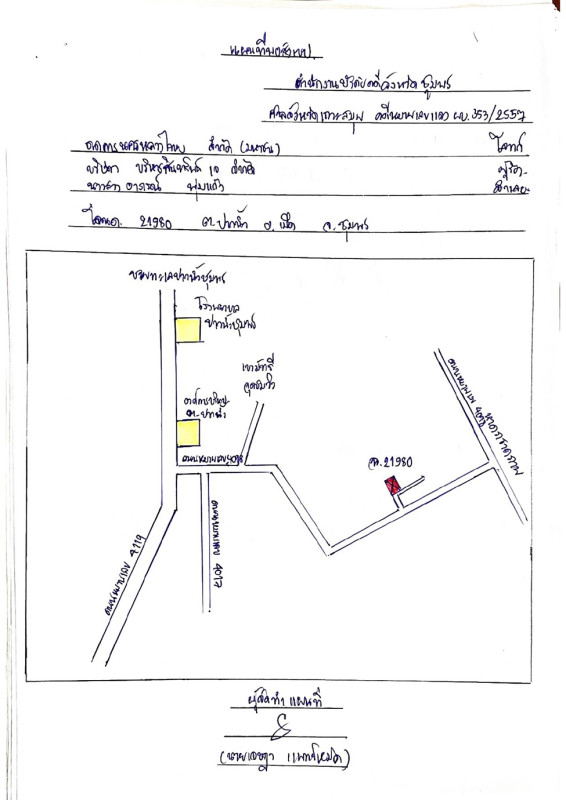 แผนที่พอสังเขป
สำนักงานบังคับคดีจังหวัดชุมพร
ศาลจังหวัดเกาะสมุย คดีหมายเลขแดง ผบ.353/2557
ธนาคารนครหลวงไทย จำกัด (มหาชน) โจทก์
บริษัท บริหารสินทรัพย์ จำกัด ผู้ร้อง
นางสาว อาภรณ์ พุ่มแก้ว จำเลย
โฉนด 21980 ต.ปากน้ำ อ.เมือง จ.ชุมพร
ชายทะเลปากน้ำชุมพร
โรงพยาบาล
ปากน้ำชุมพร
เขามัทรี
จุดชมวิว
ต.ปากน้ำ
ถนนหมายเลข
ฉ.21980
ถนนหมายเลข หาดภราดรภาพ
ถนนหมายเลข 4119
ถนนหมายเลข 4017
ผู้จัดทำแผนที่